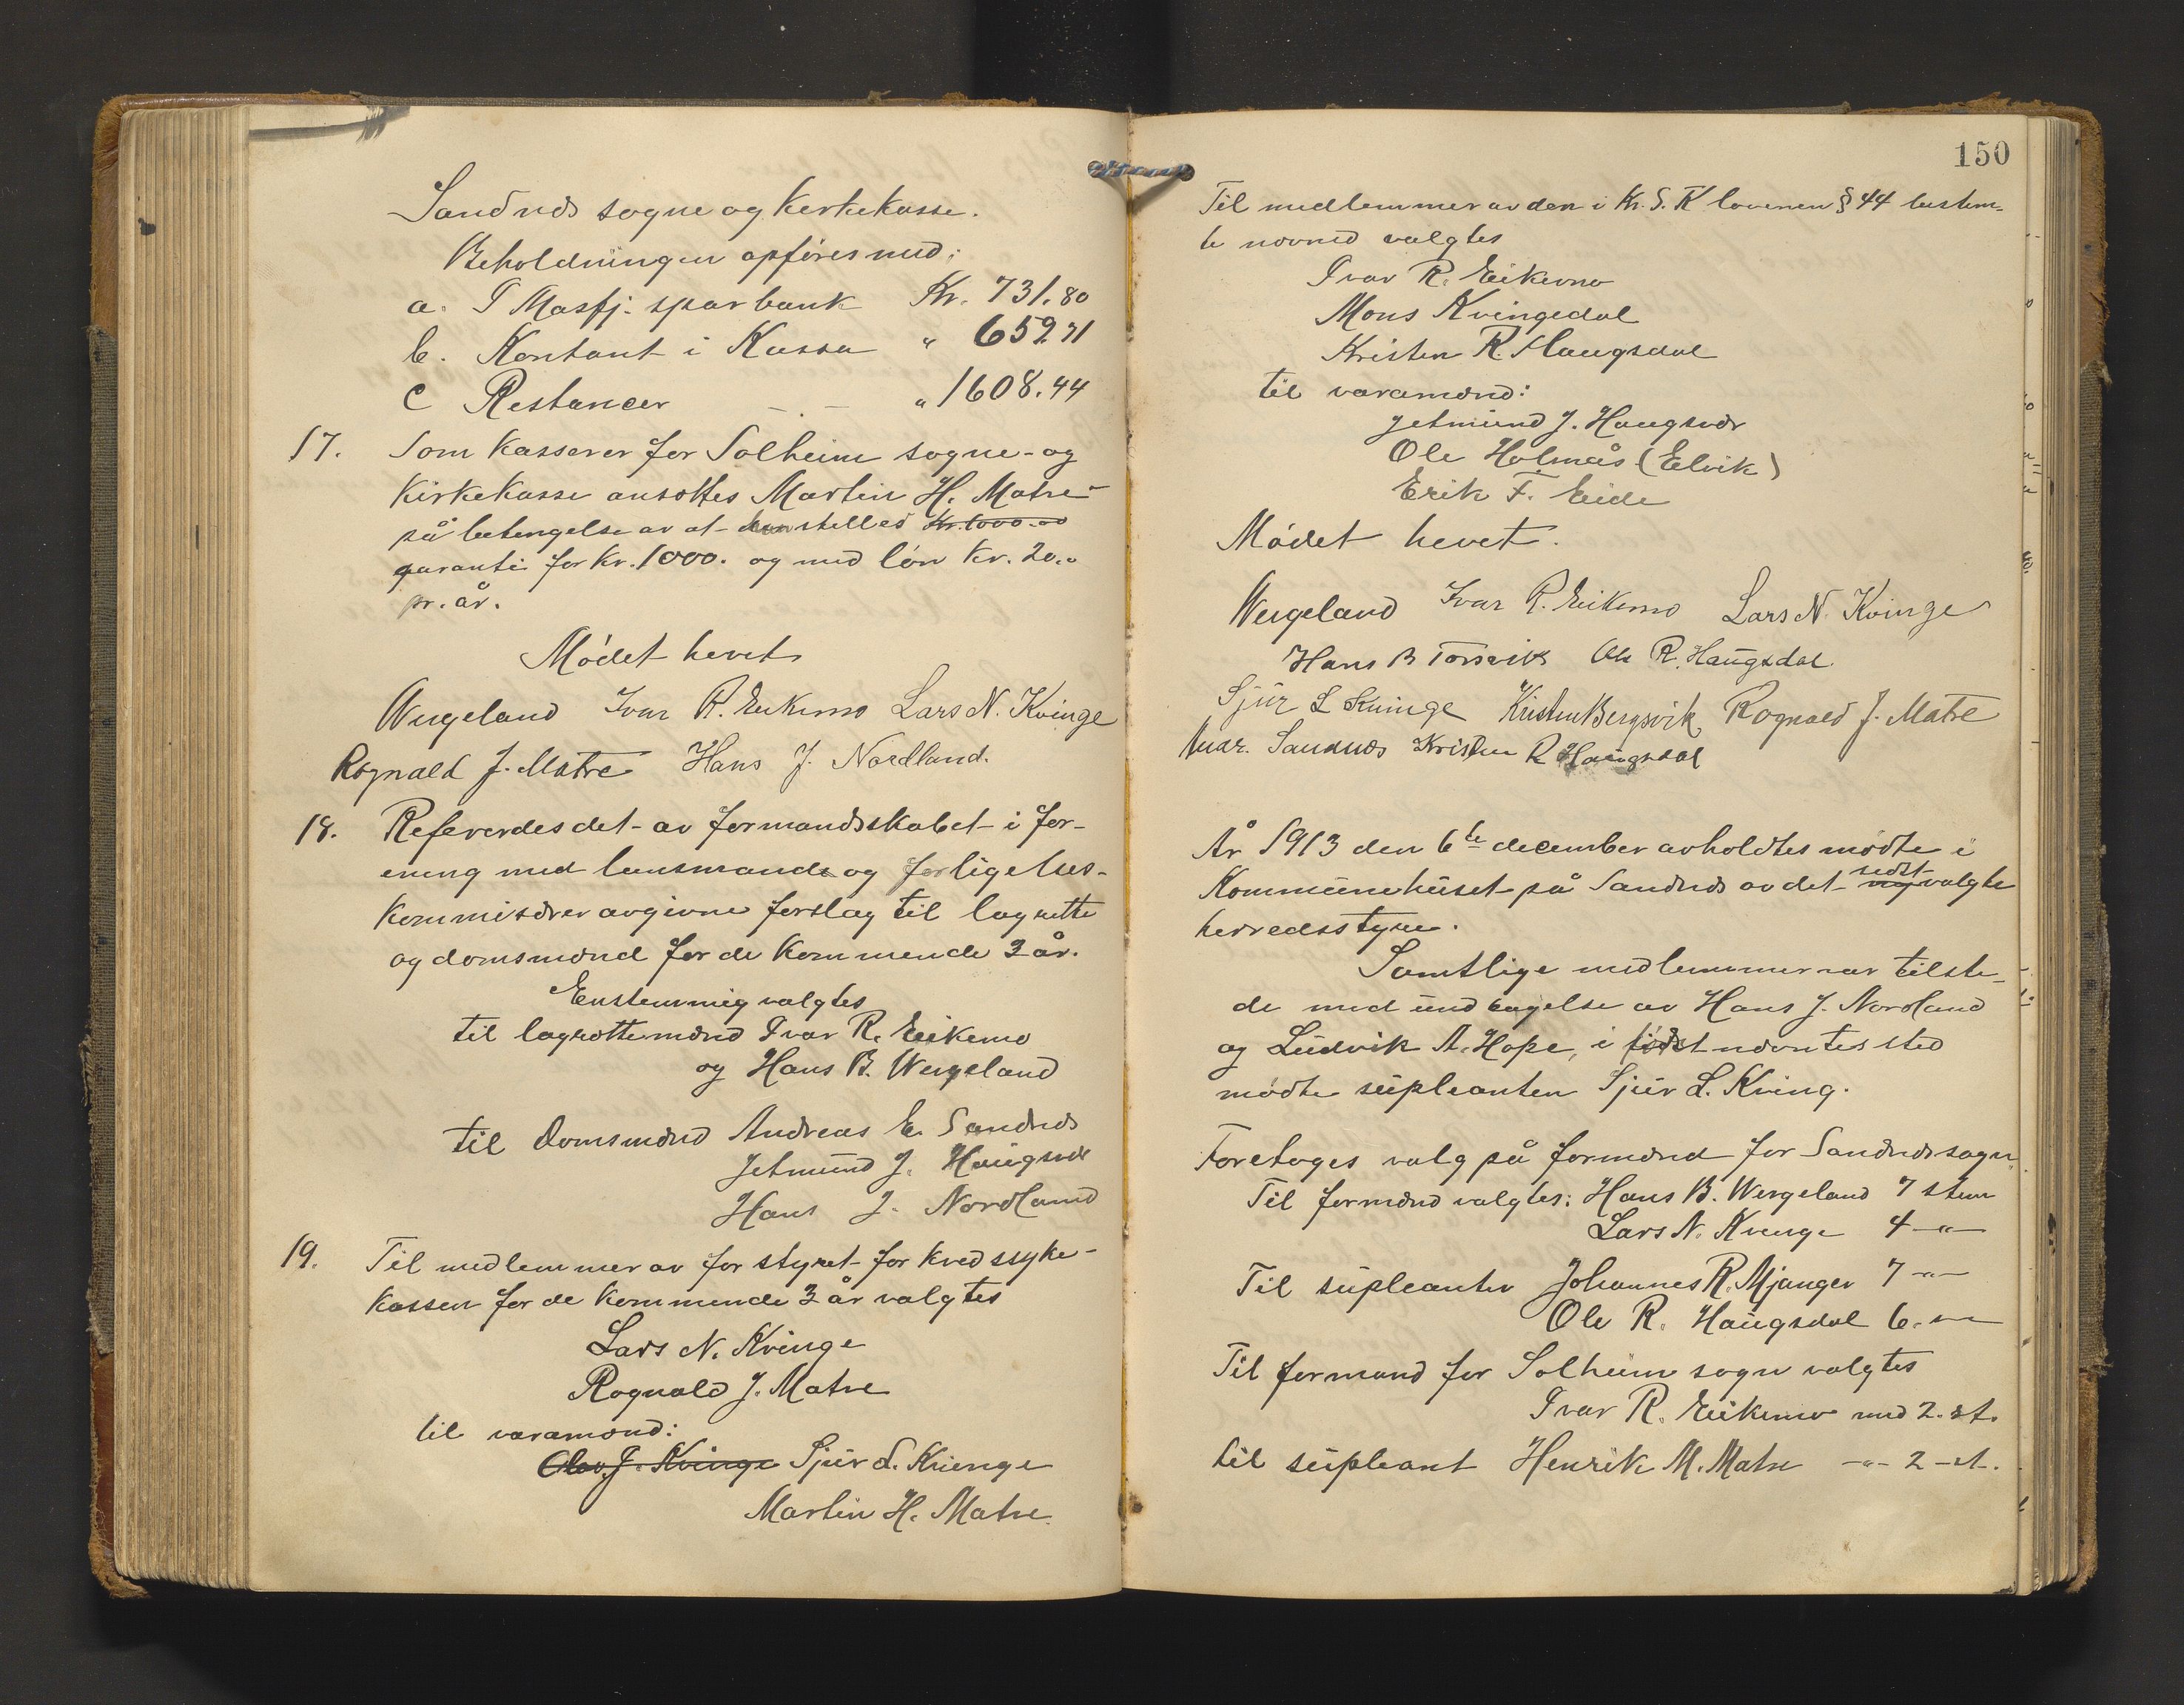 Sandnæs sogne og kirkekasse.
Beholdningen opføres med:
a. I Masfj. sparbank Kr. 731.80
b. Kontant i Kassa " 659.71
c Restancer - - " 1608.44
17. Som kasserer for Solheim sogne- og
kirkekasse ansættes Martin H. Matre
på betingelse av at han stilles Kr. 1000.00
garanti for kr. 1000. og med løn kr. 20.00
pr. år.
Mødet hevet
Wergeland Ivar R. Eikemo Lars N. Kvinge
Rognald J. Matre Hans J. Nordland.
18. Refererdes det av formandsskabet i for-
ening med lensmand og forligelses-
kommisærer avgivne forslag til lagrette
og domsmænd for de kommende 3 år.
Enstemmig valgtes
til lagrettemænd Ivar R. Eikemo
og Hans B. Wergeland
til Domsmænd Andreas E. Sandnæs
Jetmund J. Haugsvær
Hans J. Nordland
19. Til medlemmer av for styret for kredssyke-
kassen for de kommende 3 år valgtes
Lars N. Kvinge
Rognald J. Matre
til varamænd:
Olav J. Kvinge Sjur L. Kvinge
Martin H. Matre.
150
Til medlemmer av den i Kr. S. K lovenen § 44 bestem-
te nævnd valgtes
Ivar R. Eikemo
Mons Kvingedal
Kristen R. Haugsdal
til varamænd:
Jetmund J. Haugsvær
Ole Holmås (Elvik)
Erik F. Eide
Mødet hevet.
Wergeland Ivar R. Eikemo Lars N. Kvinge
Hans B Torsvik Ole R. Haugsdal.
Sjur L Kvinge Kristen Bergsvik Rognald J. Matre
Andr. Sandnæs Kristen R Haugsdal
År 1913 den 6te december avholdtes mødte i
Kommunehuset på Sandnæs av det ny sidst valgte
herredsstyre.
Samtlige medlemmer var tilste-
de med undtagelse av Hans J. Nordland
og Ludvik A. Hope, i først nævntes sted
mødte supleanten Sjur L. Kving.
Foretoges valg på formænd for Sandnæs sogn
Til formænd valgtes: Hans B. Wergeland 7 stem
Lars N. Kvinge 4 -"-
Til supleanter Johannes R. Mjanger 7 -"-
Ole R. Haugsdal 6 -"-
Til formand for Solheim sogn valgtes
Ivar R. Eikemo med 2. st.
til supleant Henrik M. Matre -"- 2 - st.